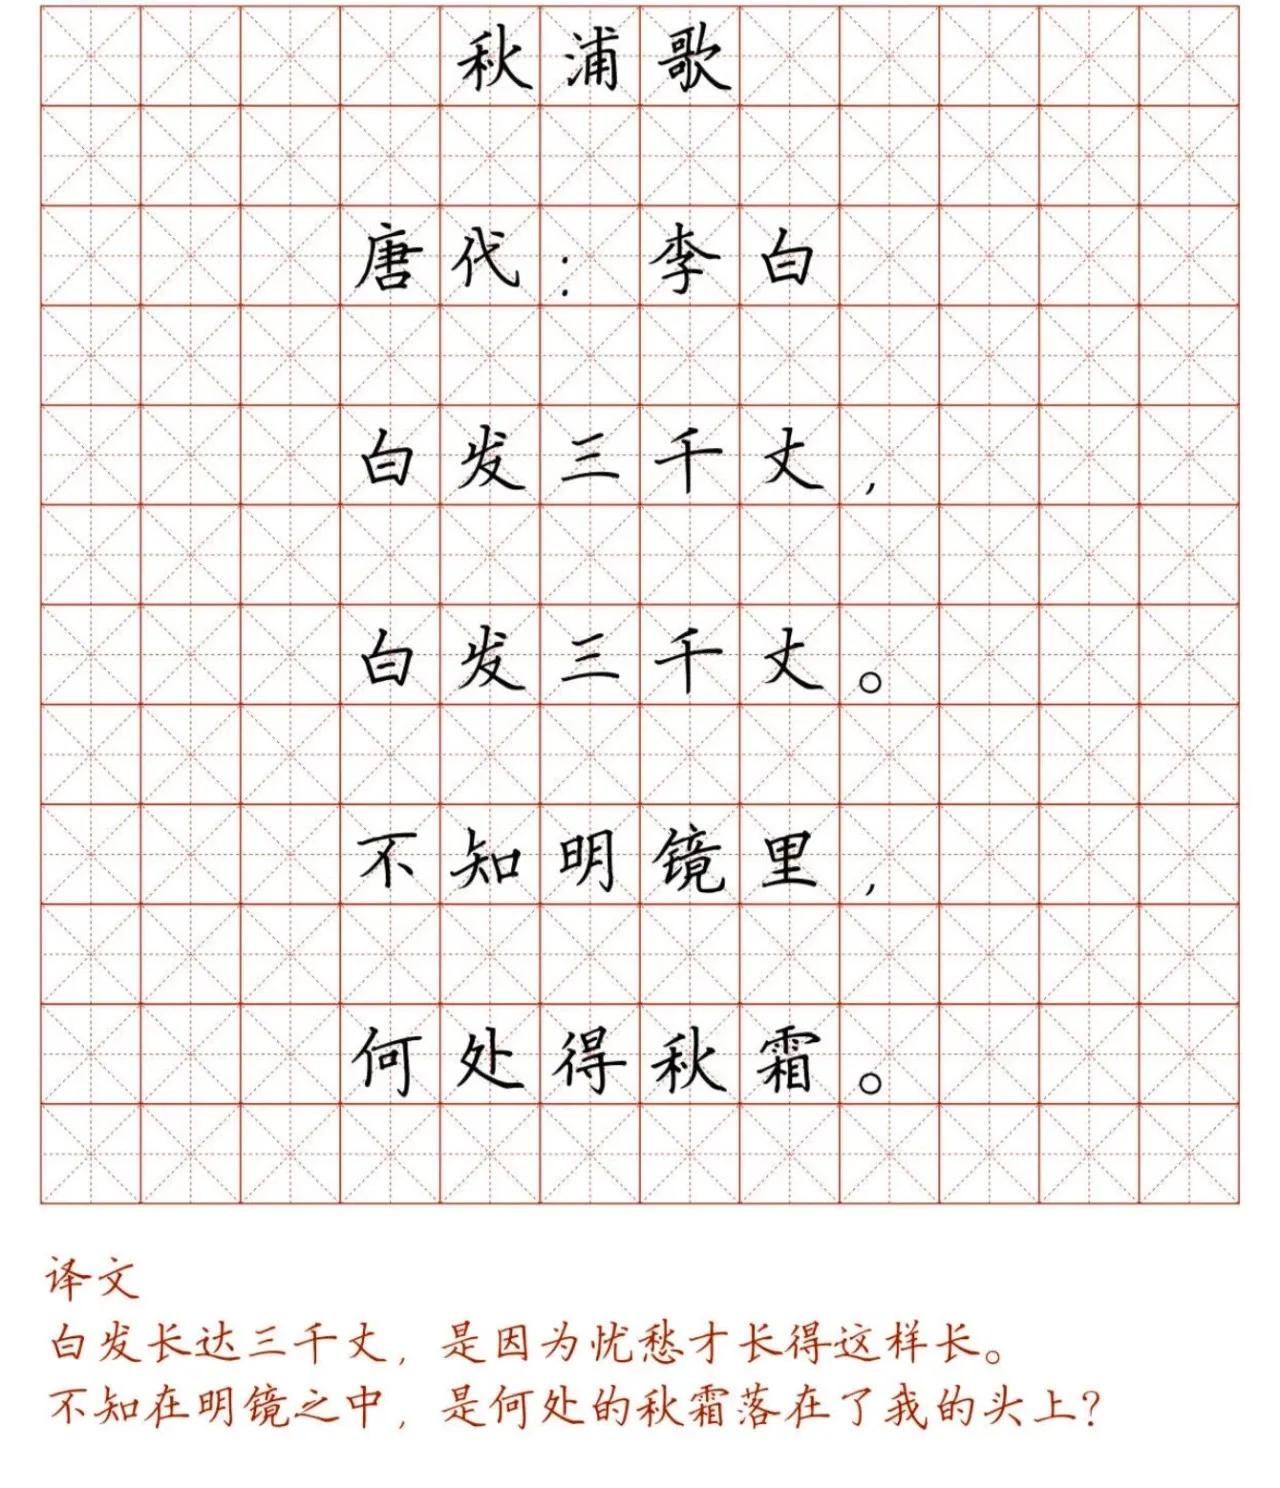 秋浦歌
唐代：李白
白发三千丈，
白发三千丈。
不知明镜里，
何处得秋霜。
译文
白发长达三千丈，是因为忧愁才长得这样长。
不知在明镜之中，是何处的秋霜落在了我的头上？